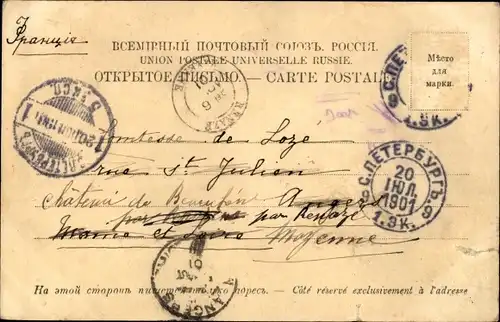 Франція
ВСЕМІРНЫЙ ПОЧТОВЫЙ СОЮЗЪ. РОССІЯ.
UNION POSTALE UNIVERSELLE RUSSIE.
ОТКРЫТОЕ ПИСЬМО. — CARTE POSTALE
Мѣсто
для
марки.
1.ЭК.
Comtesse de Lozé
rue St Julien
Château de Angers
par par Renazé
Maine et Loire Mayenne
С.ПЕТЕРБУРГЪ
20
ІЮЛ.
1901
1.ЭК.
ANGERS
На этой сторонѣ пишется только адресъ. — Côté réservé exclusivement à l'adresse